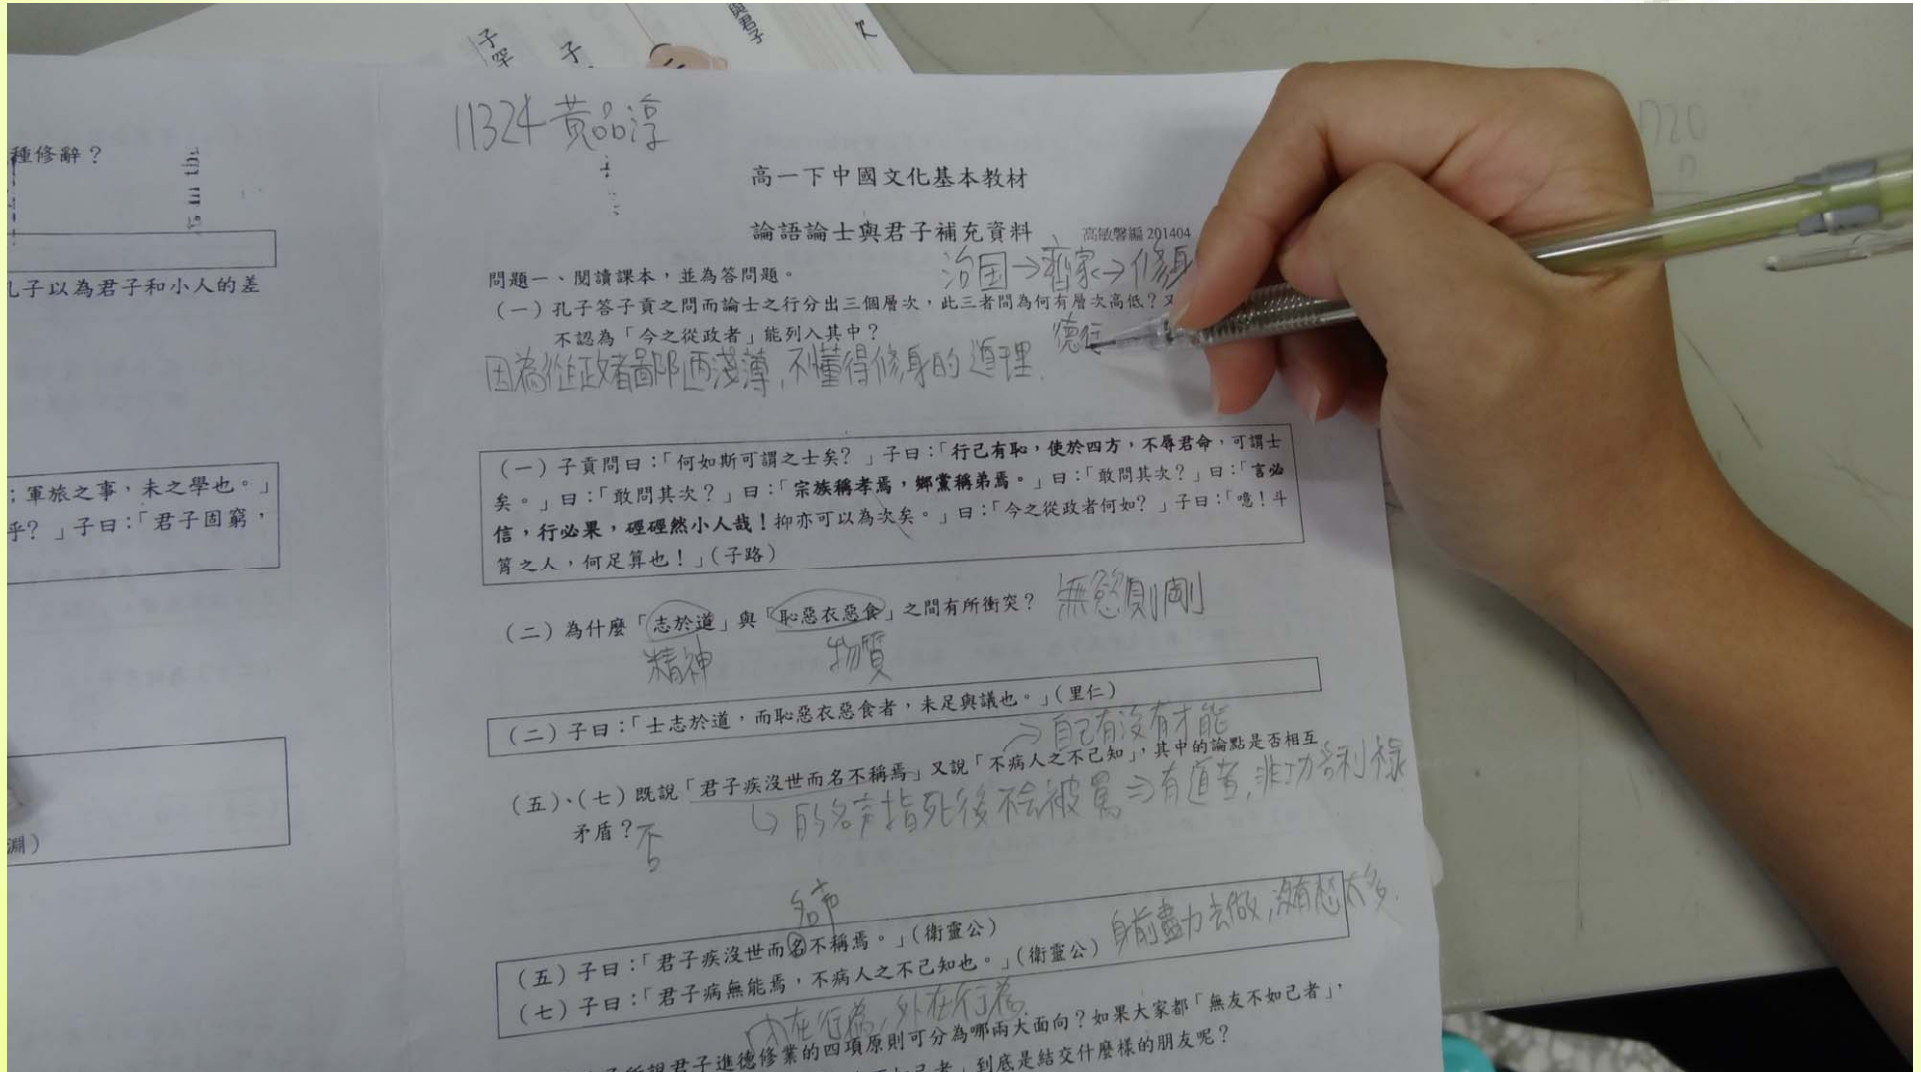 子罕
子
與君子
種修辭？
孔子以為君子和小人的差
；軍旅之事，未之學也。」
乎？」子曰：「君子固窮，
淵）
11324 黃品淳
高一下中國文化基本教材
論語論士與君子補充資料
高敏馨編 201404
治国→齊家→修身
問題一、閱讀課本，並為答問題。
（一）孔子答子貢之問而論士之行分出三個層次，此三者間為何有層次高低？又
不認為「今之從政者」能列入其中？
德行
因為從政者鄙陋淺薄，不懂得修身的道理．
（一）子貢問曰：「何如斯可謂之士矣？」子曰：「行己有恥，使於四方，不辱君命，可謂士
矣。」曰：「敢問其次？」曰：「宗族稱孝焉，鄉黨稱弟焉。」曰：「敢問其次？」曰：「言必
信，行必果，硜硜然小人哉！抑亦可以為次矣。」曰：「今之從政者何如？」子曰：「噫！斗
筲之人，何足算也！」（子路）
（二）為什麼「志於道」與「恥惡衣惡食」之間有所衝突？ 無慾則剛
精神 物質
（二）子曰：「士志於道，而恥惡衣惡食者，未足與議也。」（里仁）
→自己有沒有才能
（五）、（七）既說「君子疾沒世而名不稱焉」又說「不病人之不己知」，其中的論點是否相互
矛盾？否
的名声指死後不会被罵⇒有道者，非功名利祿
名声
（五）子曰：「君子疾沒世而名不稱焉。」（衛靈公）
（七）子曰：「君子病無能焉，不病人之不己知也。」（衛靈公）
身前盡力去做，沒有想太多．
內在行為，外在行為．
所說君子進德修業的四項原則可分為哪兩大面向？如果大家都「無友不如己者」，
不如己者」到底是結交什麼樣的朋友呢？
720